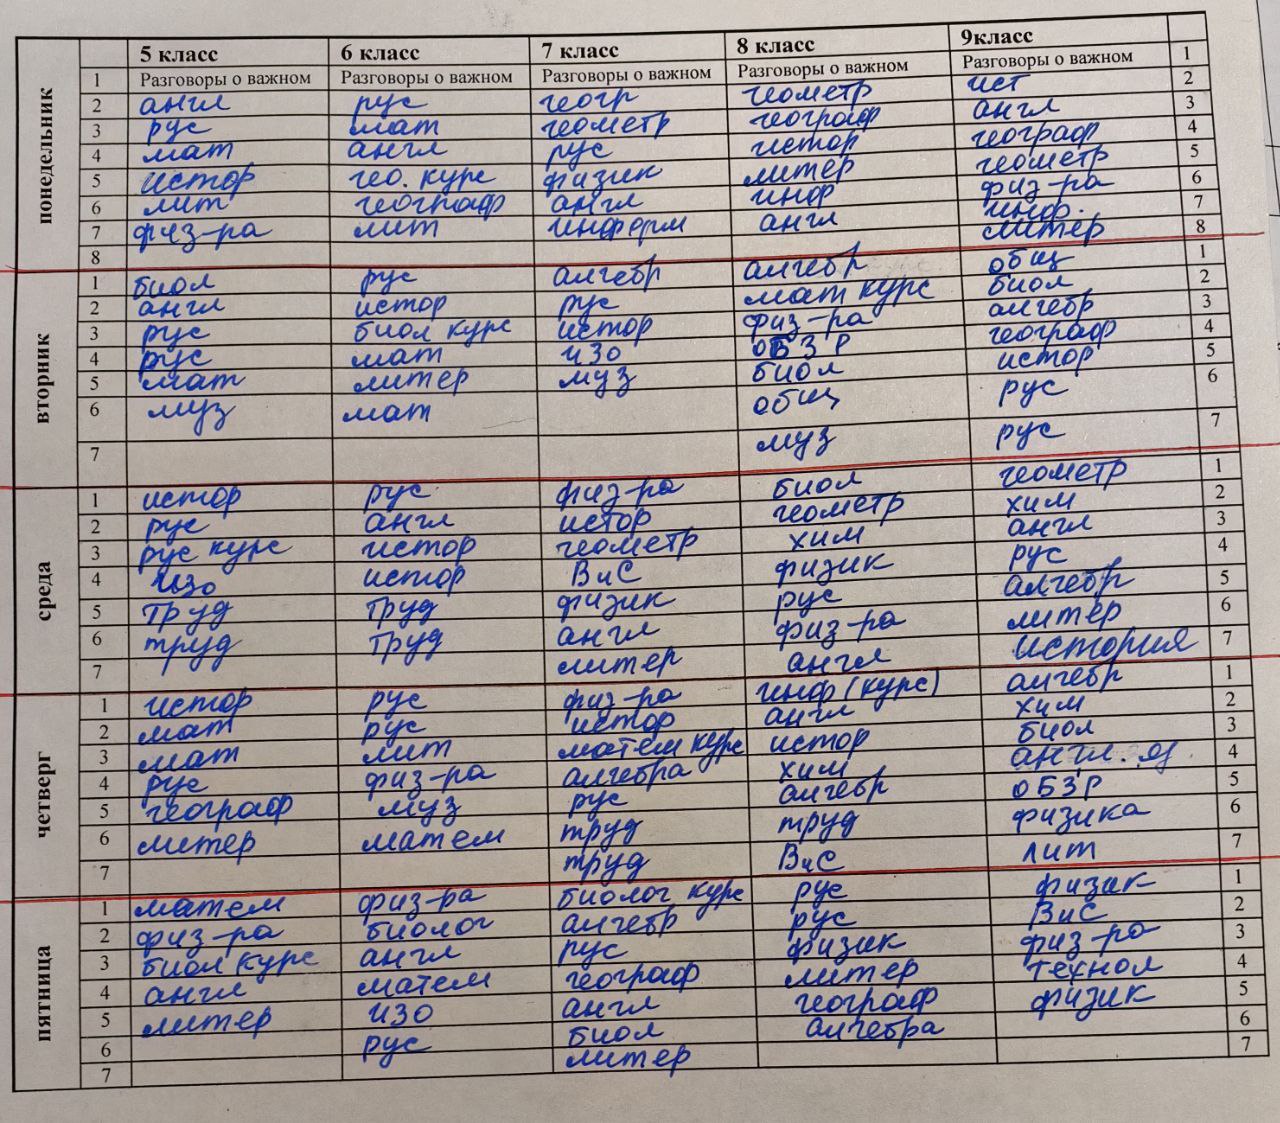 5 класс 6 класс 7 класс 8 класс 9класс
понедельник
1 Разговоры о важном Разговоры о важном Разговоры о важном Разговоры о важном Разговоры о важном 1
2 англ рус геогр геометр ист 2
3 рус мат геометр географ англ 3
4 мат англ рус истор географ 4
5 истор гео. курс физик литер геометр 5
6 лит географ англ инф физ-ра 6
7 физ-ра лит информ англ инф. 7
8 литер 8
вторник
1 биол рус алгебр алгебр общ 1
2 англ истор рус мат курс биол 2
3 рус биол курс истор физ-ра алгебр 3
4 рус мат изо ОБЗР географ 4
5 мат литер муз биол истор 5
6 муз мат общ рус 6
7 муз рус 7
среда
1 истор рус физ-ра биол геометр 1
2 рус англ истор геометр хим 2
3 рус курс истор геометр хим англ 3
4 изо истор ВиС физик рус 4
5 труд труд физик рус алгебр 5
6 труд труд англ физ-ра литер 6
7 литер англ история 7
четверг
1 истор рус физ-ра инф (курс) алгебр 1
2 мат рус истор англ хим 2
3 мат лит матем курс истор биол 3
4 рус физ-ра алгебра хим англ. яз. 4
5 географ муз рус алгебр ОБЗР 5
6 литер матем труд труд физика 6
7 труд ВиС лит 7
пятница
1 матем физ-ра биолог курс рус физик 1
2 физ-ра биолог алгебр рус ВиС 2
3 биол курс англ рус физик физ-ра 3
4 англ матем географ литер технол 4
5 литер изо англ географ физик 5
6 рус биол алгебра 6
7 литер 7